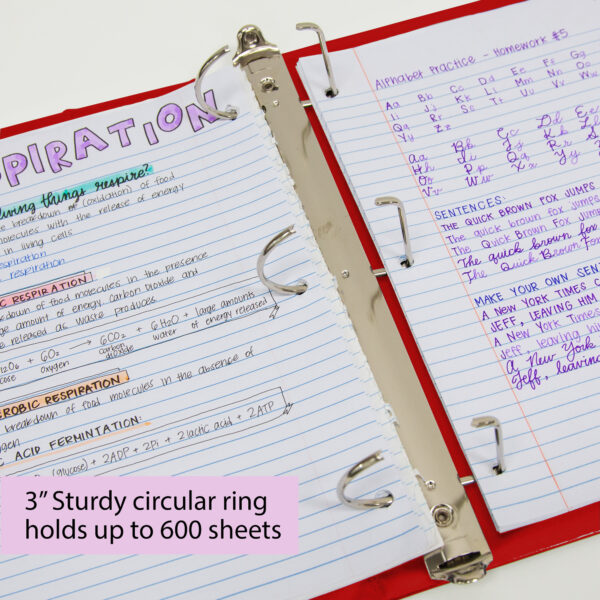 PIRATION
living things respire?
breakdown of (oxidation) of food
molecules with the release of energy
in living cells
respiration
respiration
RESPIRATION
down of food molecules in the presence
amount of energy, carbon dioxide and
released as waste produces
6O₂ → 6CO₂ + 6H₂O + large amounts
oxygen carbon dioxide water of energy released
EROBIC RESPIRATION
breakdown of food molecules in the absence of
C ACID FERMINTATION:
(glucose) + 2ADP + 2Pi → 2 lactic acid + 2ATP
Alphabet Practice - Homework #5
Aa Bb Cc Dd Ee Ff Gg
Ii Jj Kk Ll Mm Nn Oo
Qq Rr Ss Tt Uu Vv Ww
Yy Zz
Aa Bb Cc Dd Ee
Hh Ii Jj Kk Ll
Oo Pp Qq Rr Ss
Vv Ww Xx Yy
SENTENCES:
THE QUICK BROWN FOX JUMPS
The quick brown fox jumps
The Quick Brown Fox Jumps
The quick brown fox
The Quick Brown Fox
MAKE YOUR OWN SENT
A NEW YORK TIMES C
JEFF, LEAVING HIM
A New York Times
Jeff, leaving hi
A New York
Jeff, leavin
3” Sturdy circular ring
holds up to 600 sheets